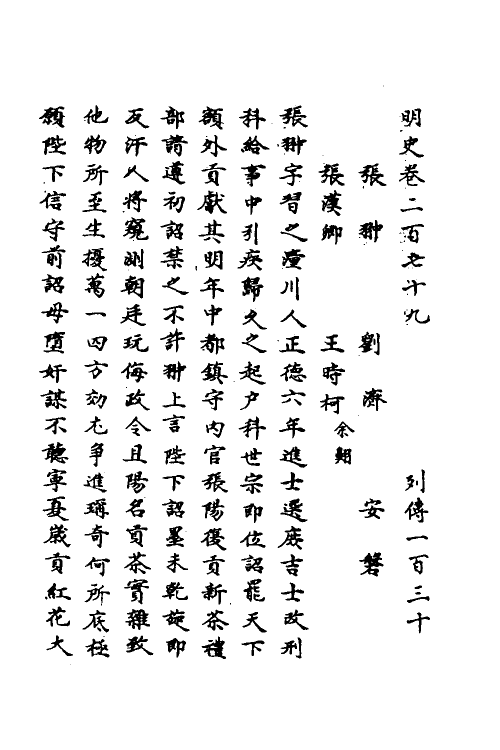 明史卷二百七十九 列傳一百三十
張翀 劉濟 安磐
張漢卿 王時柯 余翱
張翀字習之潼川人正德六年進士選庶吉士改刑
科給事中引疾歸久之起户科世宗即位詔罷天下
額外貢獻其明年中都鎮守内官張陽復貢新茶禮
部請遵初詔禁之不許翀上言陛下詔墨未乾旋即
反汗人將窺測朝廷玩侮政令且陽名貢茶實雜致
他物所至生擾萬一四方効尤爭進奇何所底極
願陛下信守前詔毋墮奸謀不聽寧夏歲貢紅花大